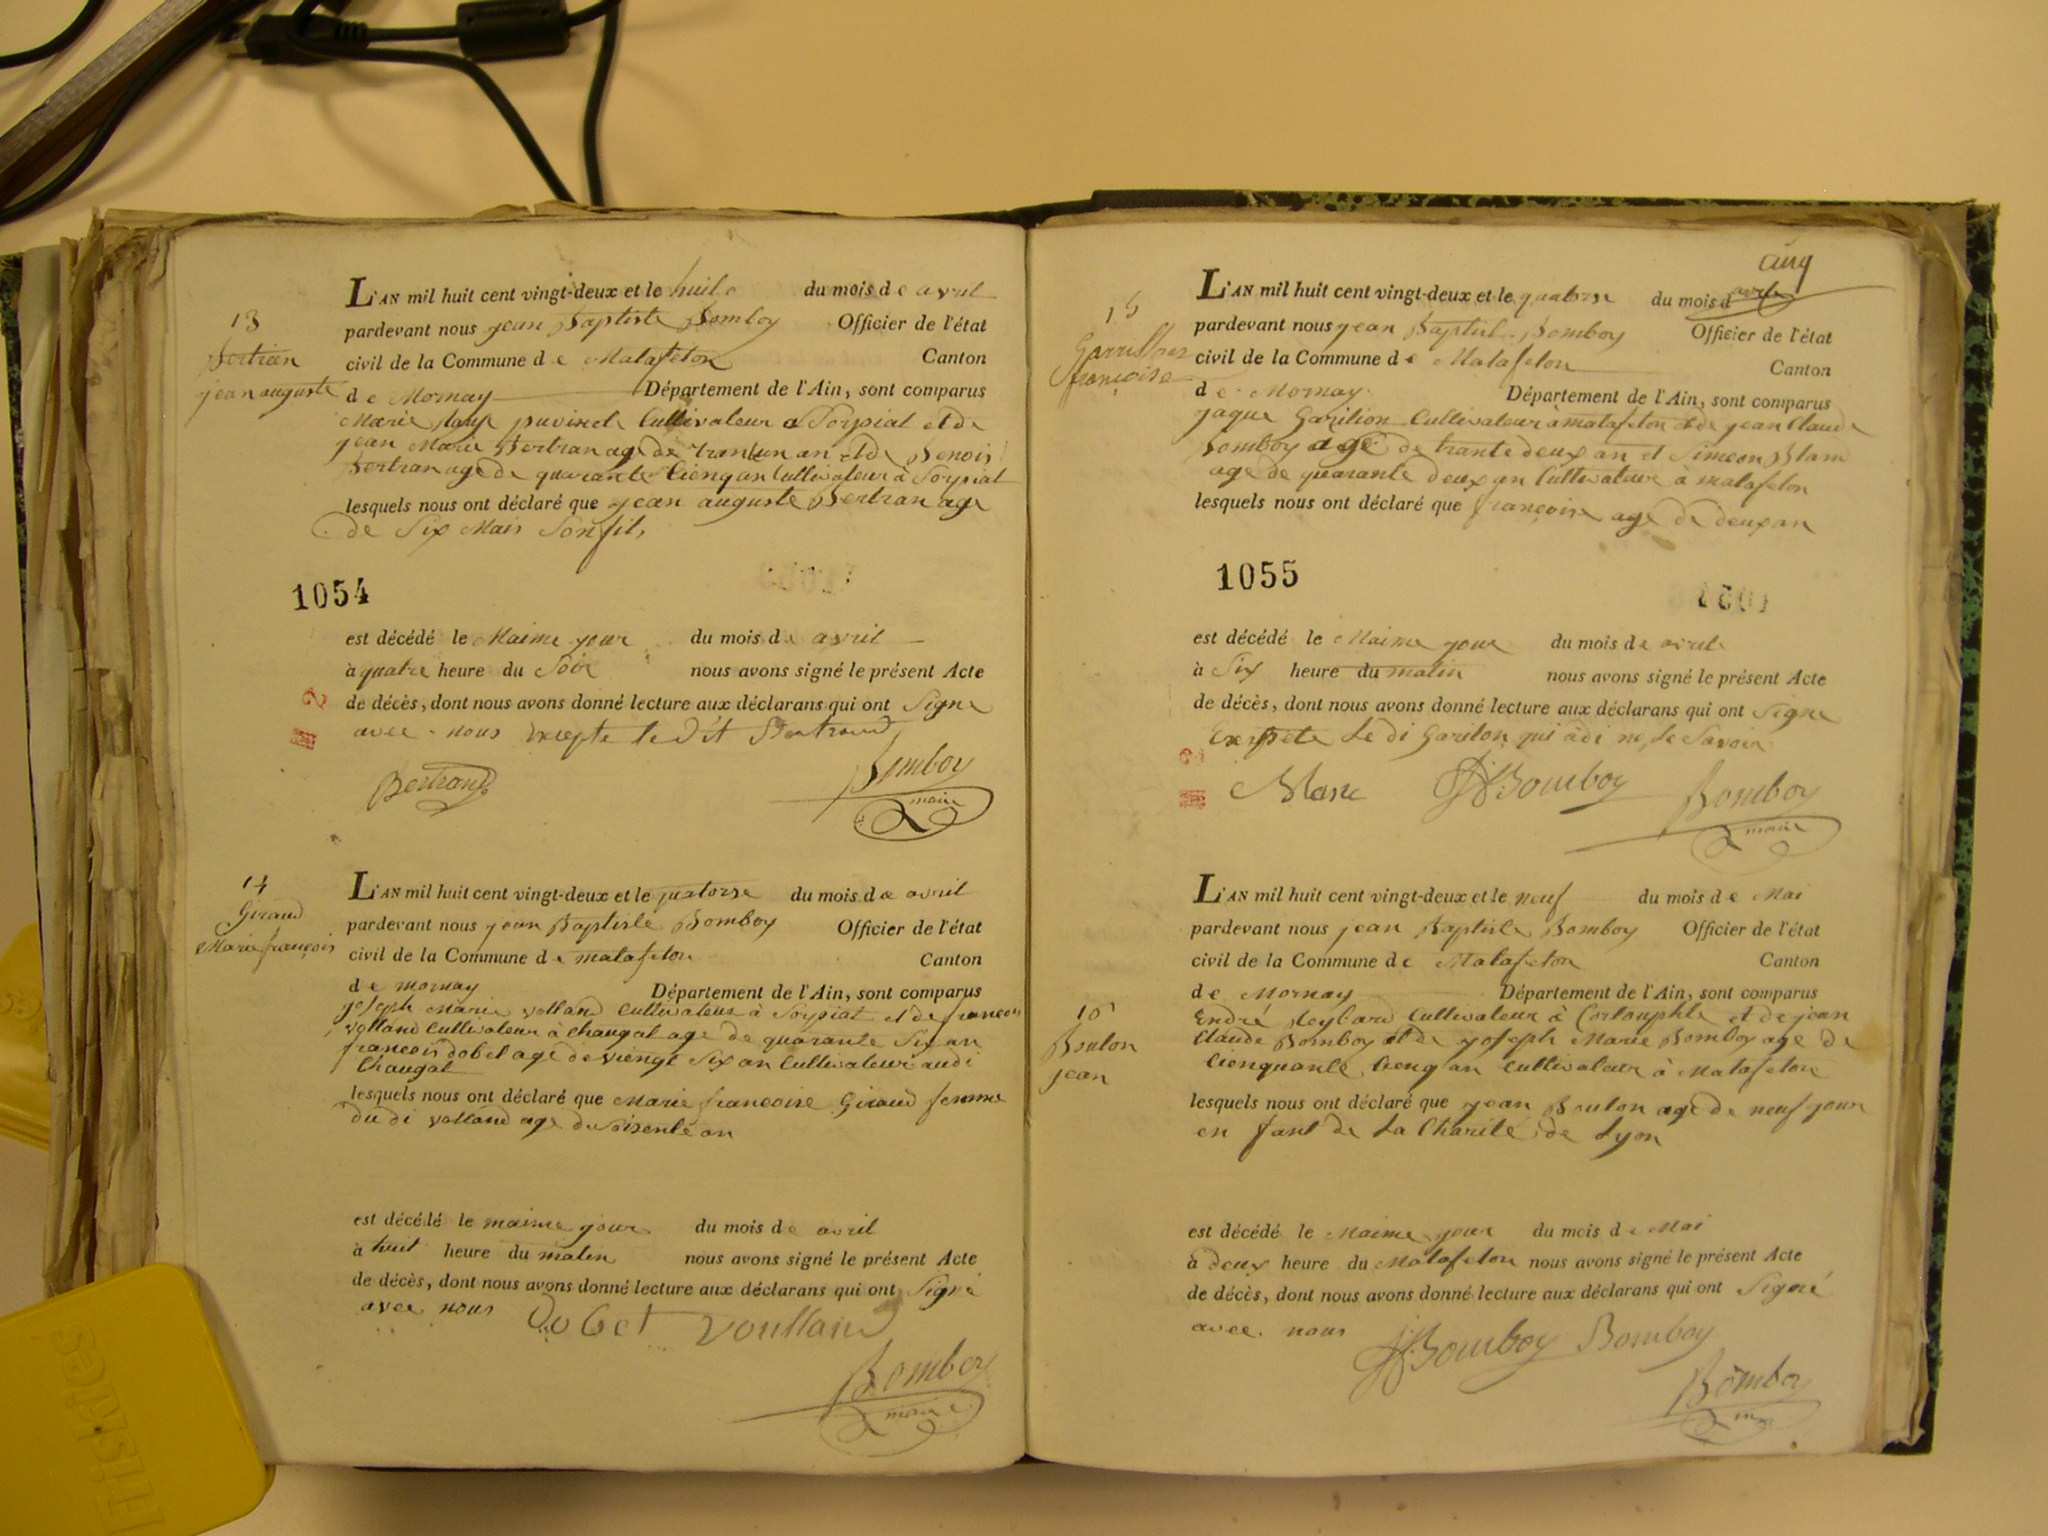 13
Bertran
jean auguste
L'AN mil huit cent vingt-deux et le huit du mois de avril
pardevant nous jean Baptiste Bomboy Officier de l'état
civil de la Commune de Matafelon Canton
de Mornay Département de l'Ain, sont comparus
Marie puvinel Cultivateur a Sorpiat et de
jean Marie Bertran age de trantun an et de Benois
Bertran age de quarante Cienq an Cultivateur à Sorpiat
lesquels nous ont déclaré que jean auguste Bertran age
de Six Mais Son fils
1054
est décédé le Maime jour du mois de avril
à quatre heure du Soir nous avons signé le présent Acte
de décès, dont nous avons donné lecture aux déclarans qui ont Signe
avec nous excepte le dit Bertrand
Bertrand
Bomboy
maire
14
Giraud
Marie françois
L'AN mil huit cent vingt-deux et le quatorse du mois de avril
pardevant nous jean Baptiste Bomboy Officier de l'état
civil de la Commune de matafelon Canton
de mornay Département de l'Ain, sont comparus
joseph Marie volland Cultivateur à Sorpiat et de francois
volland Cultivateur à Chaugat age de quarante Six an
francois dobet age de viengt Six an Cultivateur audi
Chaugat
lesquels nous ont déclaré que Marie francoise Giraud femme
du di volland age de soisente an
est décédé le maime jour du mois de avril
à huit heure du matin nous avons signé le présent Acte
de décès, dont nous avons donné lecture aux déclarans qui ont Signé
avec nous Dobet voulland
Bomboy
maire
cinq
15
Garrillon
françoise
L'AN mil huit cent vingt-deux et le quatorse du mois d avril
pardevant nous jean Baptiste Bomboy Officier de l'état
civil de la Commune de Matafelon Canton
de Mornay Département de l'Ain, sont comparus
jaque Garilion Cultivateur à matafelon et de jean Claude
Bomboy age de trante deux an et Simeon Blanc
age de quarante deux an Cultivateur à matafelon
lesquels nous ont déclaré que françoise age de deux an
1055
est décédé le Maime jour du mois de avril
à Six heure du matin nous avons signé le présent Acte
de décès, dont nous avons donné lecture aux déclarans qui ont Signe
Le di Garilon qui a di ne Le Savoir
Blanc Bomboy Bomboy
maire
16
Boulon
jean
L'AN mil huit cent vingt-deux et le neuf du mois de Mai
pardevant nous jean Baptiste Bomboy Officier de l'état
civil de la Commune de Matafelon Canton
de Mornay Département de l'Ain, sont comparus
Endré Reybard Cultivateur à et de jean
Claude Bomboy et de joseph Marie Bomboy age de
Cienquante Cienq an Cultivateur à Matafelon
lesquels nous ont déclaré que jean Boulon age de neuf jour
en fant de La Charité de Lyon
est décédé le Maime jour du mois de Mai
à deux heure du Matafelon nous avons signé le présent Acte
de décès, dont nous avons donné lecture aux déclarans qui ont Signé
avec nous
Bomboy Bomboy
Bomboy